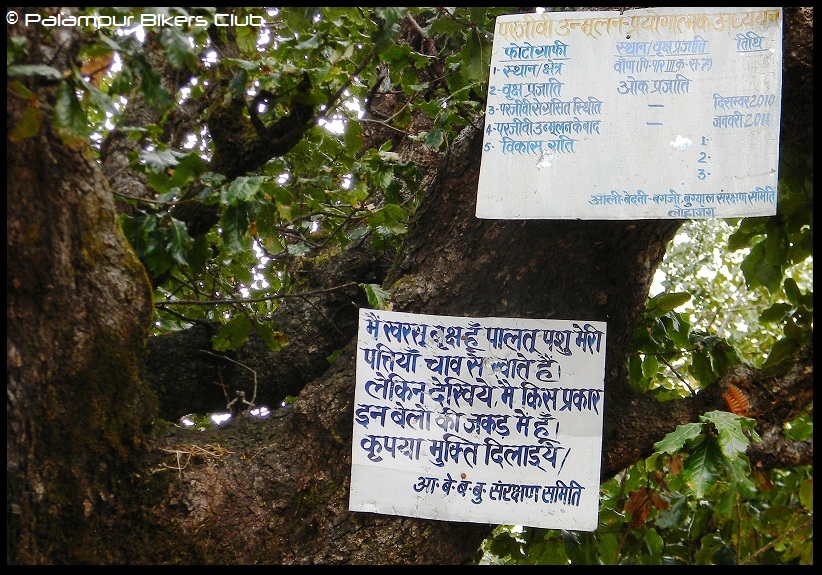 © Palampur Bikers Club
परजीवी उन्मूलन-प्रयोगात्मक अध्ययन
फोटोग्राफी स्थान/वृक्ष प्रजाति तिथि
1· स्थान/क्षेत्र
2· वृक्ष प्रजाति ओक प्रजाति
3· परजीवी से ग्रसित स्थिति — दिसम्बर 2010
4· परजीवी उन्मूलन के बाद — जनवरी 2011
5· विकास गति 1·
2·
3·
आली-बेदनी-बगजी बुग्याल संरक्षण समिति
लोहाजंग
मैं खरसू वृक्ष हूँ पालतू पशु मेरी
पत्तियाँ चाव से खाते हैं।
लेकिन देखिये, मैं किस प्रकार
इन बेलों की जकड़ में हूँ।
कृपया मुक्ति दिलाइये/
आ· बे· बं· बु· संरक्षण समिति